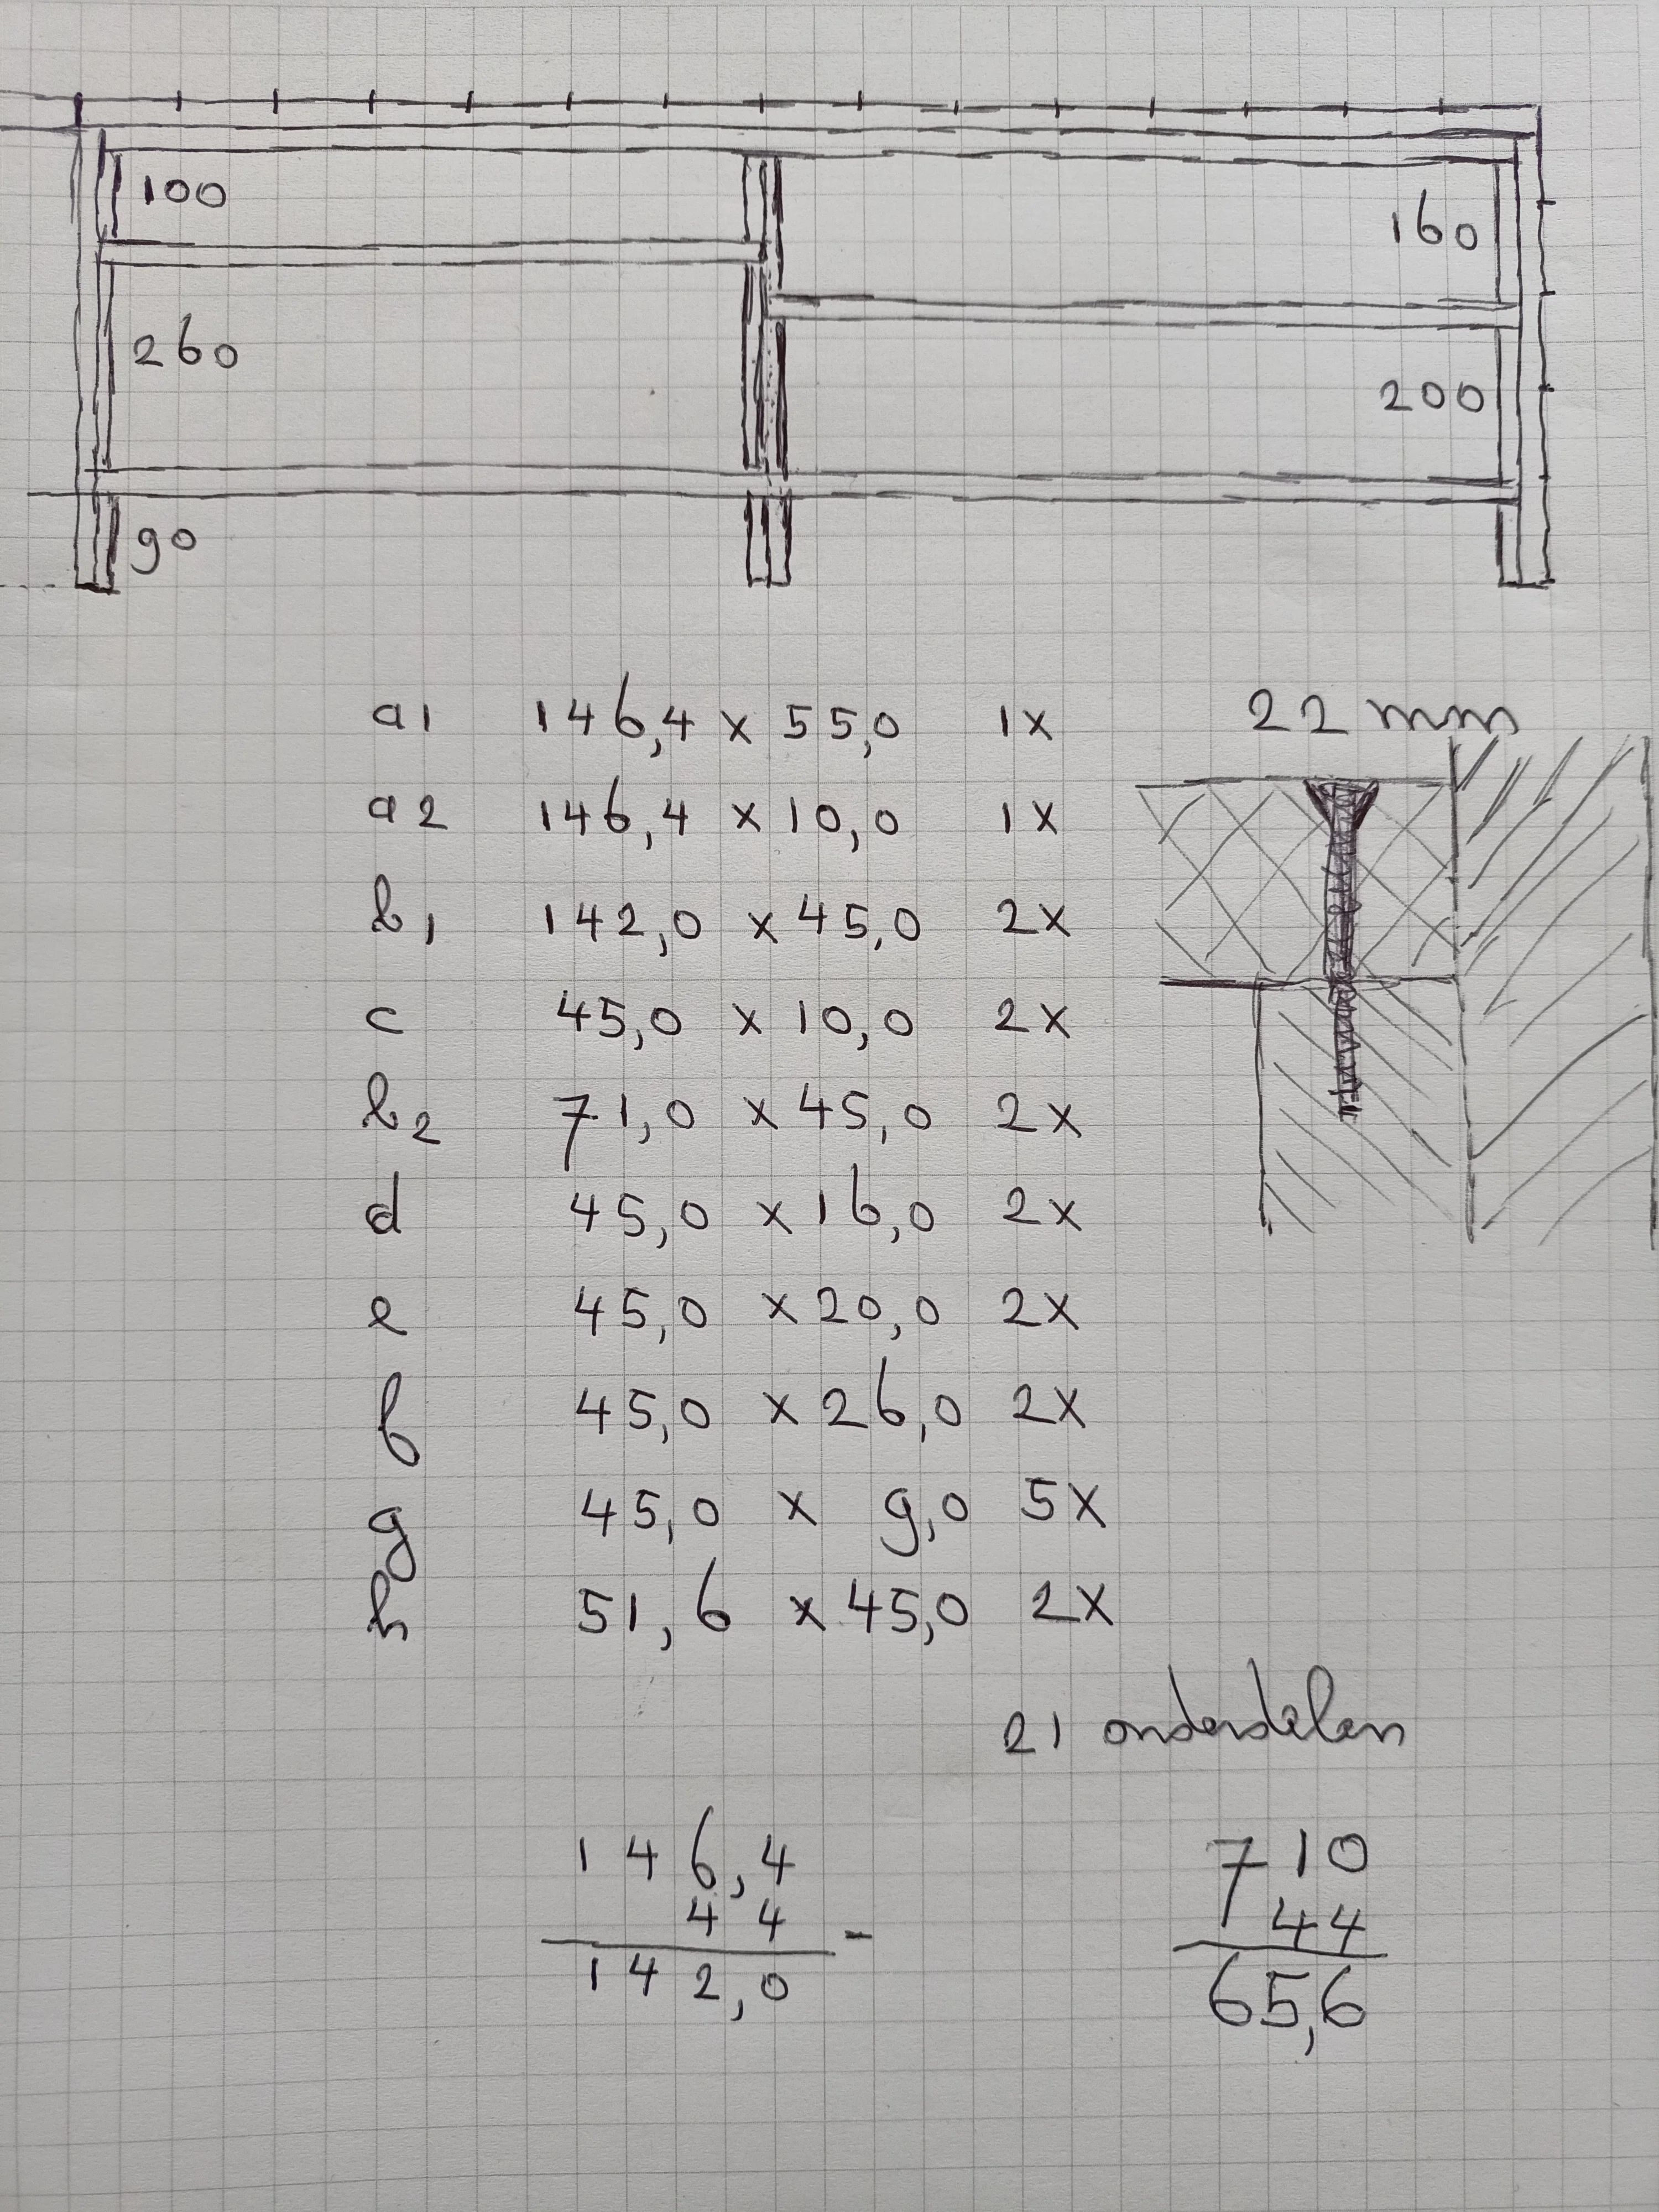 100
160
260
200
90
a1 146,4 x 55,0 1x 22 mm
a2 146,4 x 10,0 1x
b1 142,0 x 45,0 2x
c 45,0 x 10,0 2x
b2 71,0 x 45,0 2x
d 45,0 x 16,0 2x
e 45,0 x 20,0 2x
f 45,0 x 26,0 2x
g 45,0 x 9,0 5x
h 51,6 x 45,0 2x
21 onderdelen
146,4
44 -
142,0
710
44
65,6